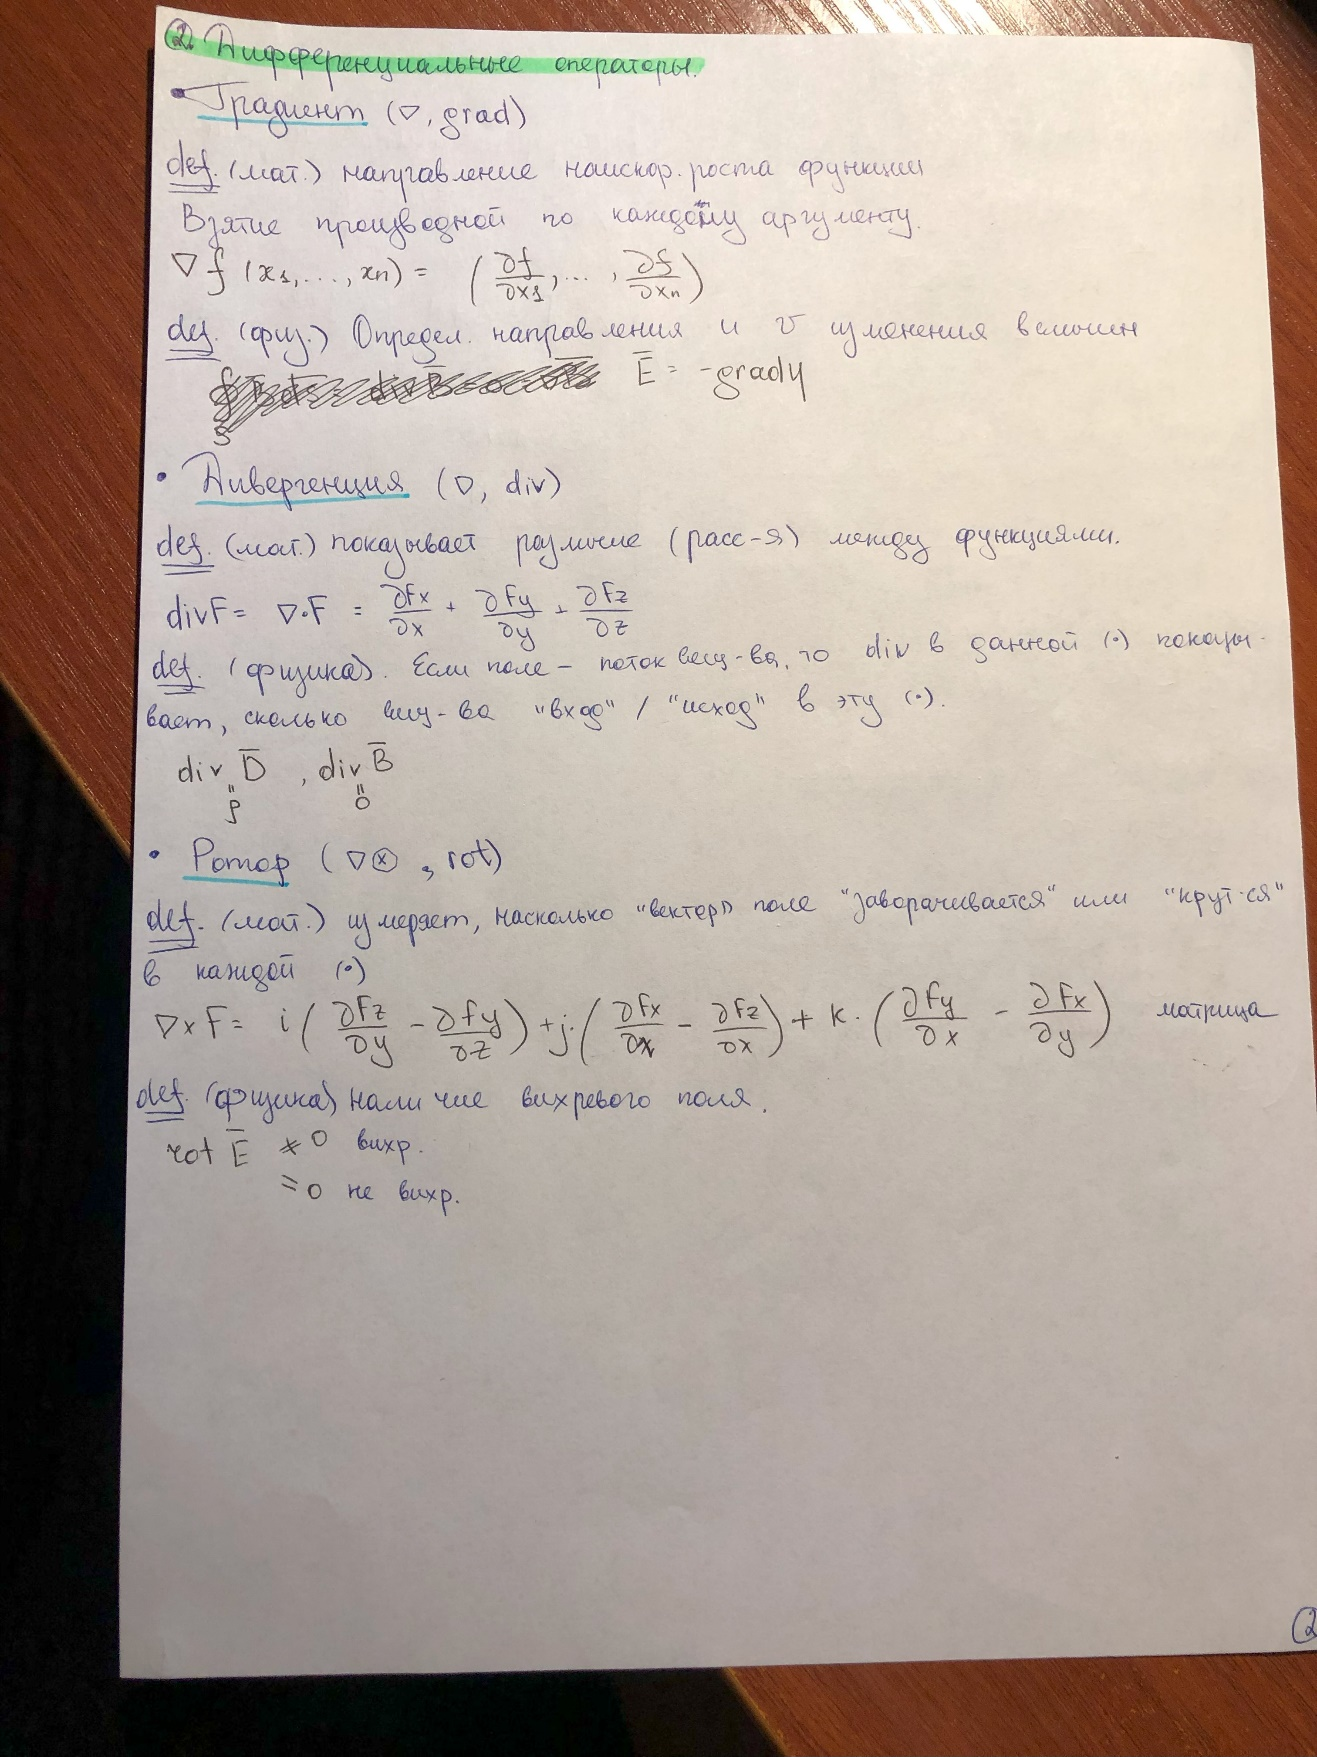 2. Дифференциальные операторы.
• Градиент (∇, grad)
def. (мат.) направление наискор. роста функции
Взятие производной по каждому аргументу.
∇f (x₁, ..., xn) = (∂f/∂x₁, ... , ∂f/∂xn)
def. (физ.) Определ. направления и v изменения величин
Ē = -gradφ
• Дивергенция (∇, div)
def. (мат.) показывает различие (расс-я) между функциями.
divF = ∇·F = ∂Fx/∂x + ∂Fy/∂y + ∂Fz/∂z
def. (физика). Если поле – поток вещ-ва, то div в данной (·) показы-
вает, сколько вещ-ва "вход" / "исход" в эту (·).
div D̄ , div B̄
= ρ = 0
• Ротор (∇⊗, rot)
def. (мат.) измеряет, насколько "вектор" поле "заворачивается" или "крут-ся"
в каждой (·)
∇×F = i(∂Fz/∂y - ∂Fy/∂z) + j·(∂Fx/∂z - ∂Fz/∂x) + k·(∂Fy/∂x - ∂Fx/∂y) матрица
def. (физика) наличие вихревого поля.
rot Ē ≠ 0 вихр.
= 0 не вихр.
2